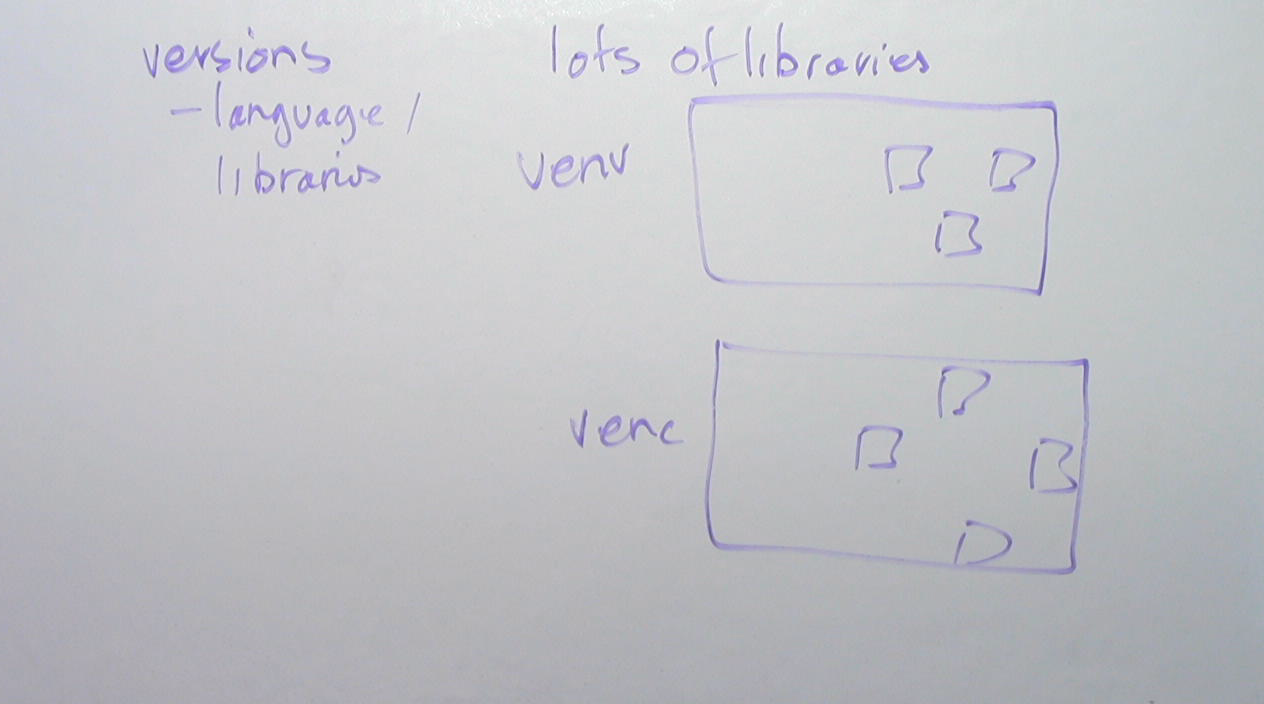 versions
- language /
libraries
lots of libraries
venv
venc